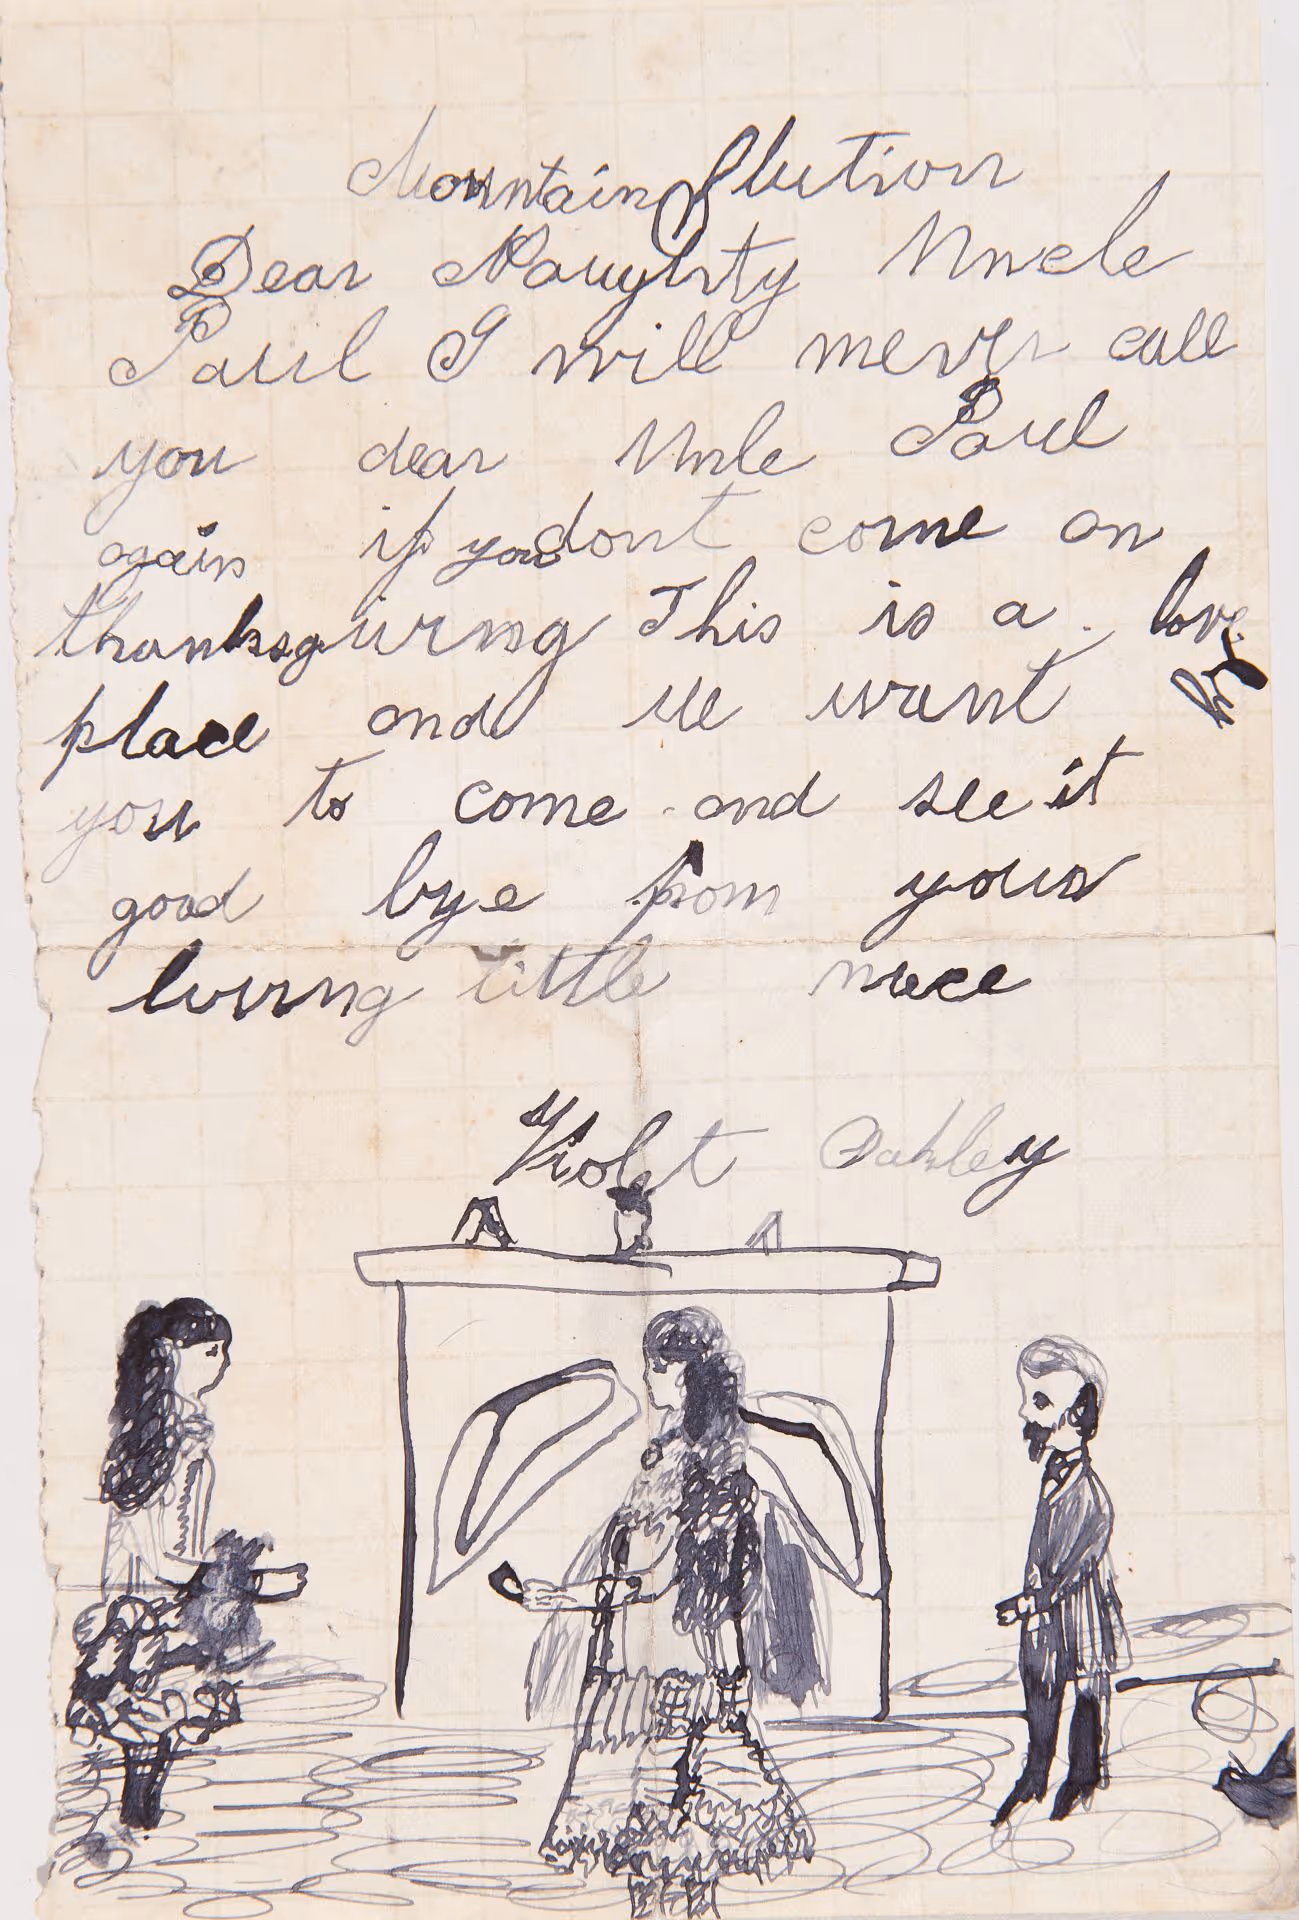 Mountain Station
Dear Naughty Uncle
Paul I will never call
you dear Uncle Paul
again if you dont come on
thanksgiving This is a lovely
place and we want
you to come and see it
good bye from your
loving little niece
Violet Oakley